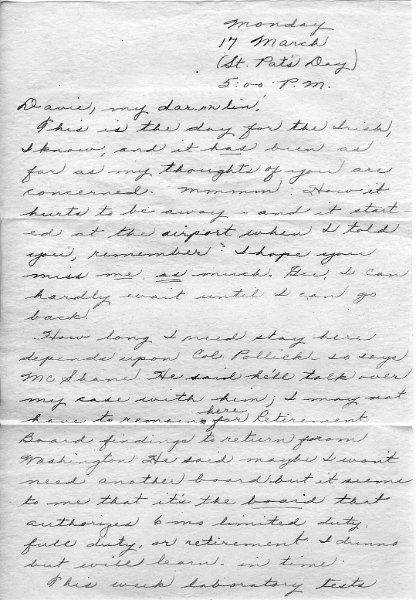 Monday
17 March
(St. Pat's Day)
5:00 P.M.
Davie, my darlin',
This is the day for the Irish,
I know, and it has been as
far as my thoughts of you are
concerned. Mmmm. How it
hurts to be away - and it start
ed at the airport when I told
you, remember? I hope you
miss me as much. Gee, I can
hardly wait until I can go
back.
How long I need stay here
depends upon Col Pollick so says
McShane. He said he'll talk over
my case with them; I may not
have to remain here for Retirement
Board findings to return from
Washington. He said maybe I won't
need another board but it seems
to me that it's the board that
authorizes 6 mo limited duty,
full duty, or retirement. I dunno
but will learn in time.
This week laboratory tests